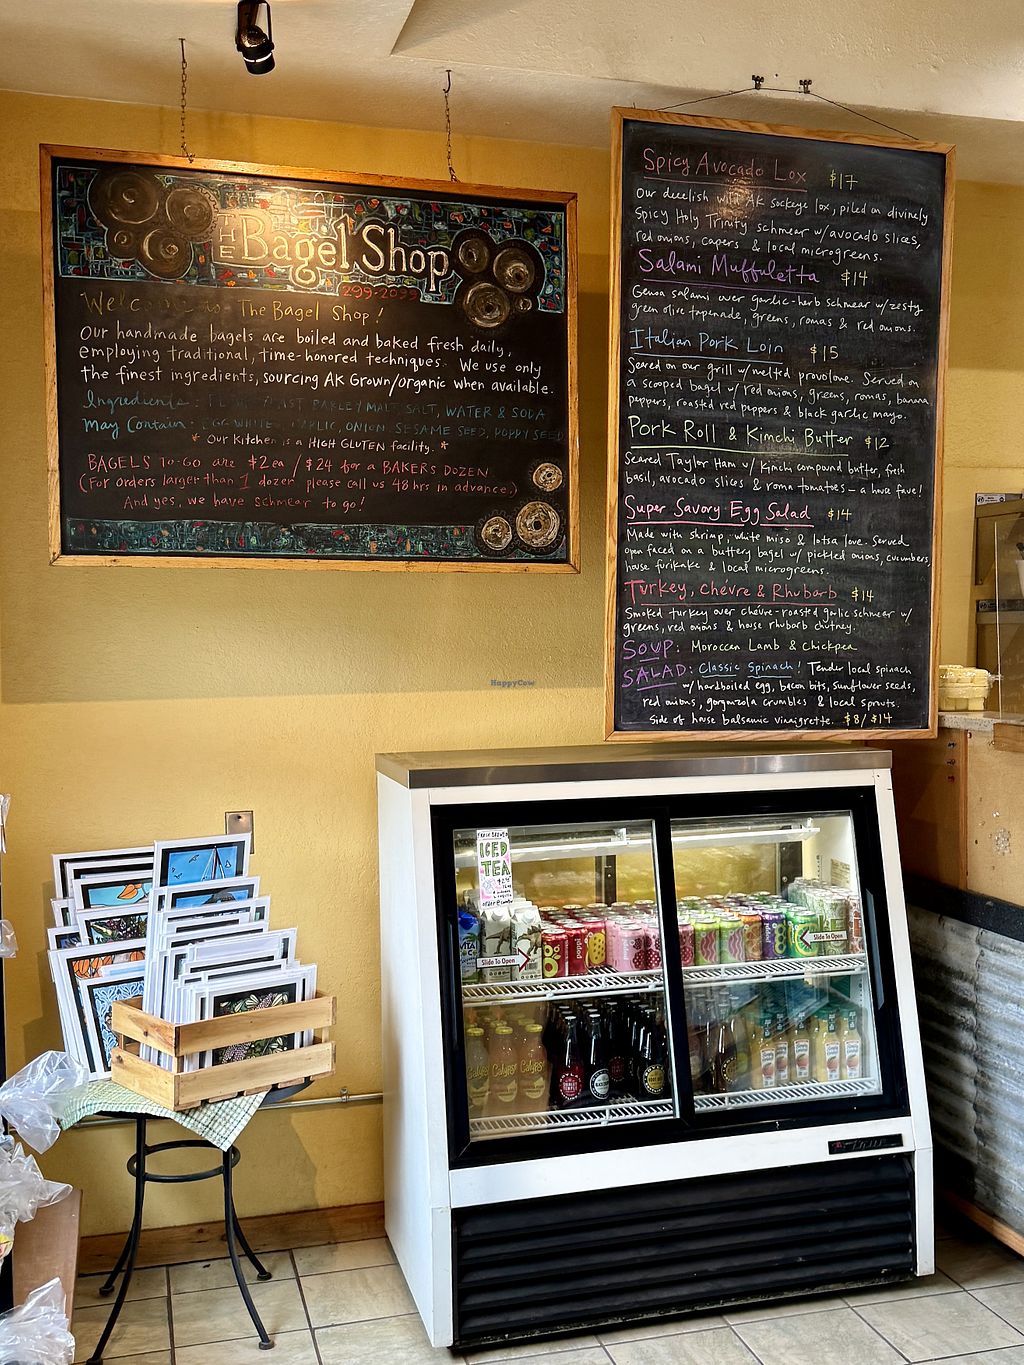 THE Bagel Shop
299-2099
Welcome to The Bagel Shop!
Our handmade bagels are boiled and baked fresh daily,
employing traditional, time-honored techniques. We use only
the finest ingredients, sourcing AK Grown/organic when available.
Ingredients: BARLEY MALT, SALT, WATER & SODA
May Contain: EGG WHITE, GARLIC, ONION, SESAME SEED, POPPY SEED
* Our Kitchen is a HIGH GLUTEN facility. *
BAGELS To-Go are $2ea / $24 for a BAKERS DOZEN
(For orders larger than 1 dozen please call us 48 hrs in advance,)
And yes, we have schmear to go!
Spicy Avocado Lox $17
Our deeelish wild AK sockeye lox, piled on divinely
Spicy Holy Trinity schmear w/avocado slices,
red onions, capers & local microgreens.
Salami Muffuletta $14
Genoa salami over garlic-herb schmear w/zesty
green olive tapenade, greens, romas & red onions.
Italian Pork Loin $15
Seared on our grill w/melted provolone. Served on
a scooped bagel w/ red onions, greens, romas, banana
peppers, roasted red peppers & black garlic mayo.
Pork Roll & Kimchi Butter $12
Seared Taylor Ham w/ Kimchi compound butter, fresh
basil, avocado slices & roma tomatoes – a house fave!
Super Savory Egg Salad $14
Made with shrimp, white miso & lotsa love. Served
open faced on a buttery bagel w/ pickled onions, cucumbers,
house furikake & local microgreens.
Turkey, Chévre & Rhubarb $14
Smoked turkey over chévre-roasted garlic schmear w/
greens, red onions & house rhubarb chutney.
SOUP: Moroccan Lamb & Chickpea
SALAD: Classic Spinach! Tender local spinach
w/ hardboiled egg, bacon bits, sunflower seeds,
red onions, gorgonzola crumbles & local sprouts.
Side of house balsamic vinaigrette. $8/$14
HappyCow
ICED
TEA
Slide To Open
Slide To Open
Calypso
Calypso
Calypso
True